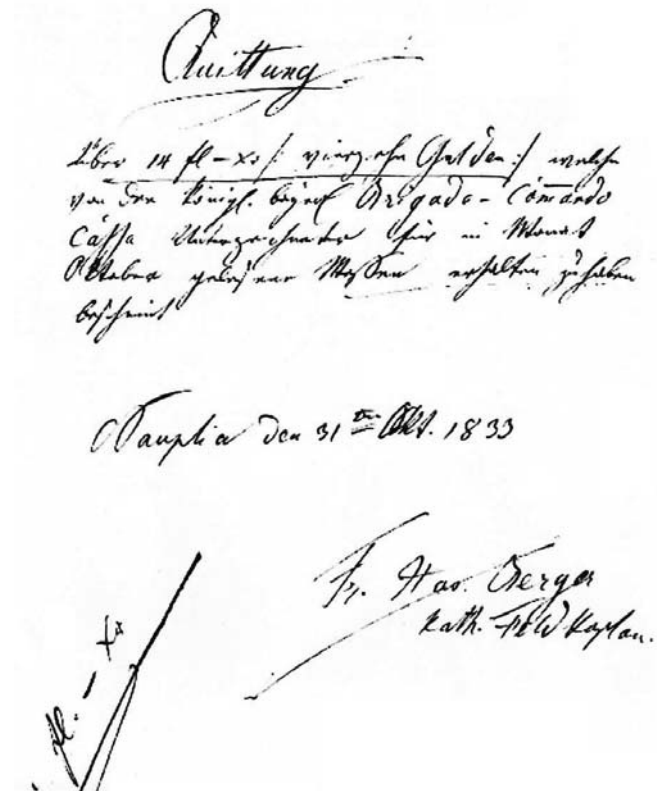 Quittung
Über 14 fl – xr /: vierzehn Gulden :/ welche
von der königl. bayer. Brigade-Com̄ando
Cassa Unterzeichneter für im Monat
Oktober gelesene Messen erhalten zu haben
bescheint
Nauplia den 31ten Okt. 1833
Fr. Berger
Kath. Feld Kaplan.
fl. – xr